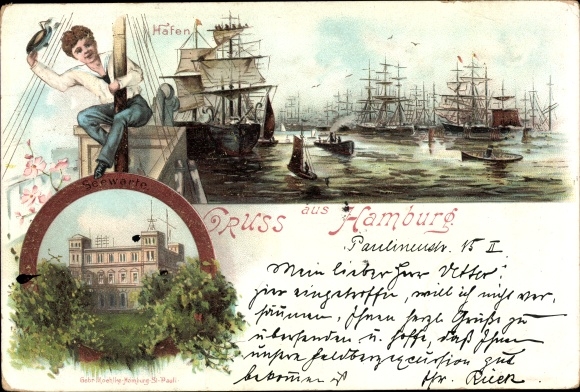 Hafen
Seewarte
GRUSS aus Hamburg.
Paulinenstr. 15 II
Mein lieber Herr Vetter!
hier eingetroffen, will ich nicht ver-
säumen, Ihnen herzl. Grüße zu
übersenden u. hoffe, daß Ihnen
unsre Feldbergexcursion gut
bekommen ist
Ihr.
Hamburg-St. Pauli